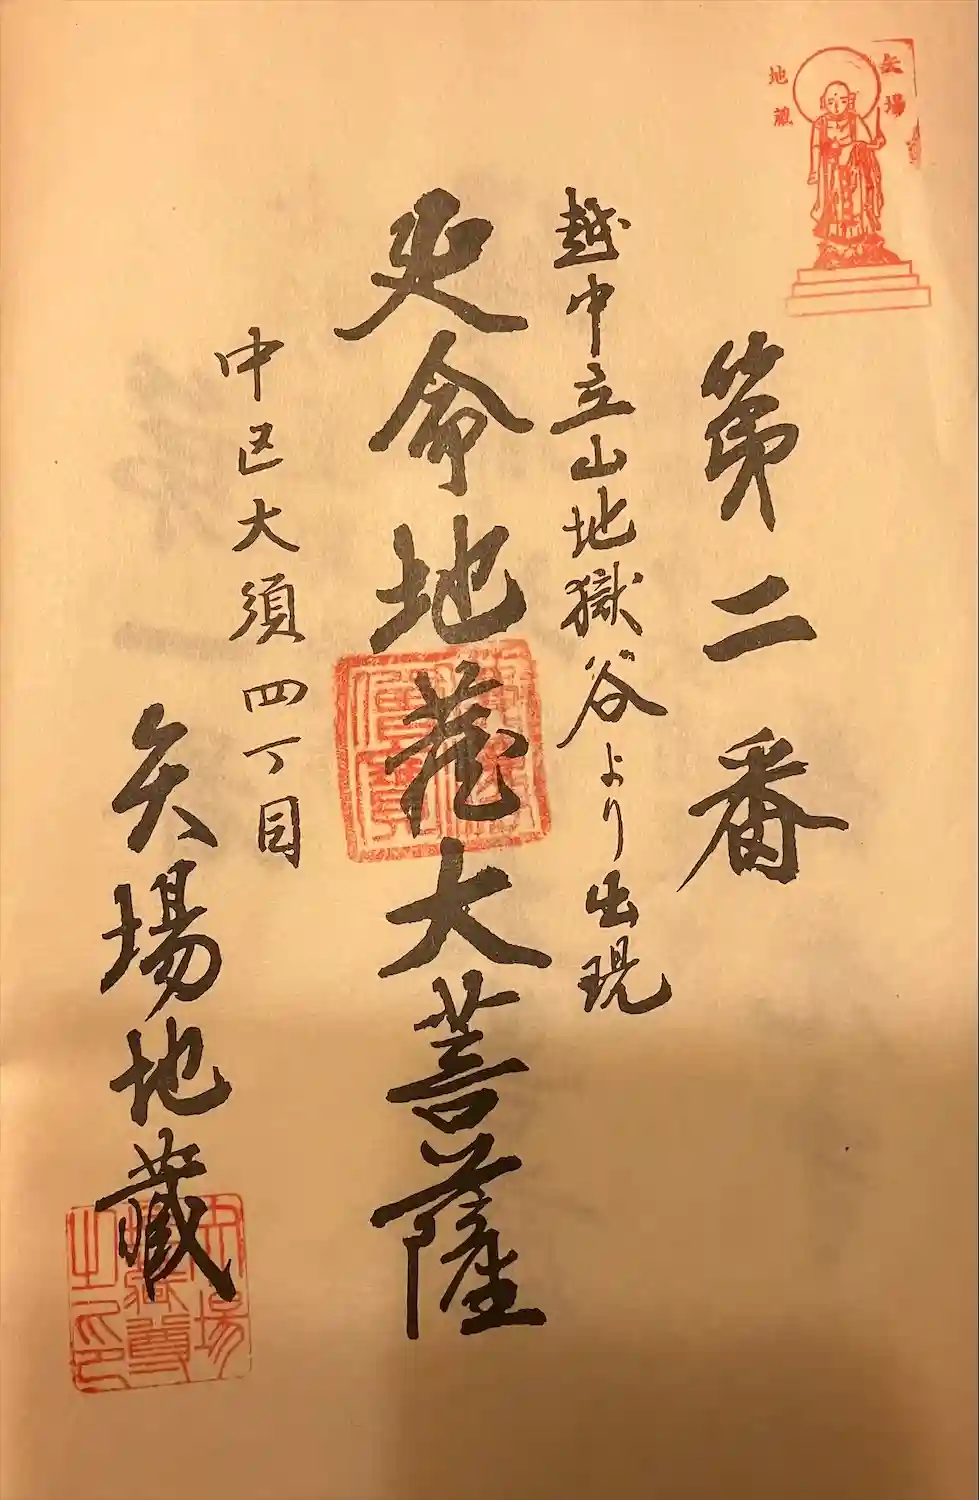 矢場
地蔵
第二番
越中立山地獄谷より出現
延命地蔵大菩薩
佛法僧寶
中区大須四丁目
矢場地蔵
矢場
地蔵尊
之印